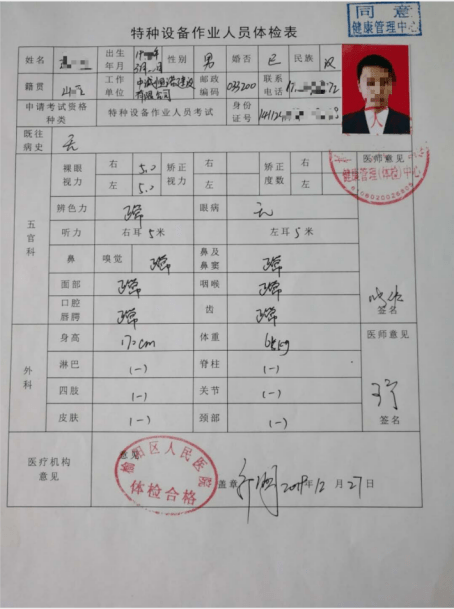 同意
健康管理中心
特种设备作业人员体检表
姓名 出生年月 性别 男 婚否 已 民族 汉
籍贯 工作单位 有限公司 邮政编码 033200 联系电话
申请考试资格种类 特种设备作业人员考试 身份证号
既往病史 无
医师意见
健康管理(体检)中心
五官科 裸眼视力 右 5.0 矫正视力 右 矫正度数 右
左 5.0 左 左
辨色力 正常 眼病 无
听力 右耳 5 米 左耳 5 米
鼻 嗅觉 正常 鼻及鼻窦 正常
面部 正常 咽喉 正常
口腔唇腭 正常 齿 正常
签名
外科 身高 170cm 体重 kg 医师意见
淋巴 (-) 脊柱 (-)
四肢 (-) 关节 (-)
皮肤 (-) 颈部 (-)
签名
医疗机构意见 意见
阳区人民医院
体检合格
盖章 2018年12月27日